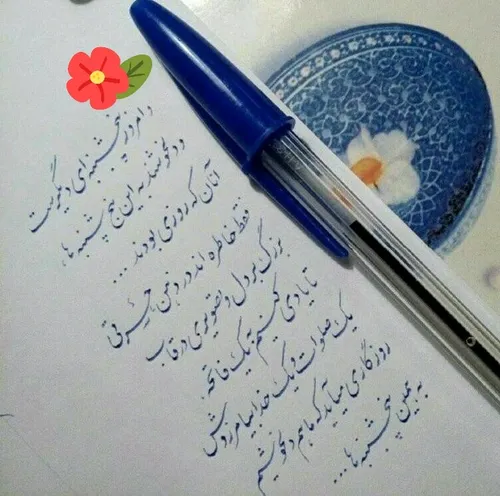 و امروز پنجشنبه‌ای دیگرست
و دلخوشند به این پنج شنبه ها،
آنان که روزی بودند ....
فقط خاطره اند در ذهن ها، حسرتی
بزرگ بر دل و تصویری در قاب
تا یادی کنیم به یک فاتحه.
یک صلوات و یک خدا بیامرزدش
روزگاری میآید که ما هم دلخوشیم
به همین پنجشنبه ها ...